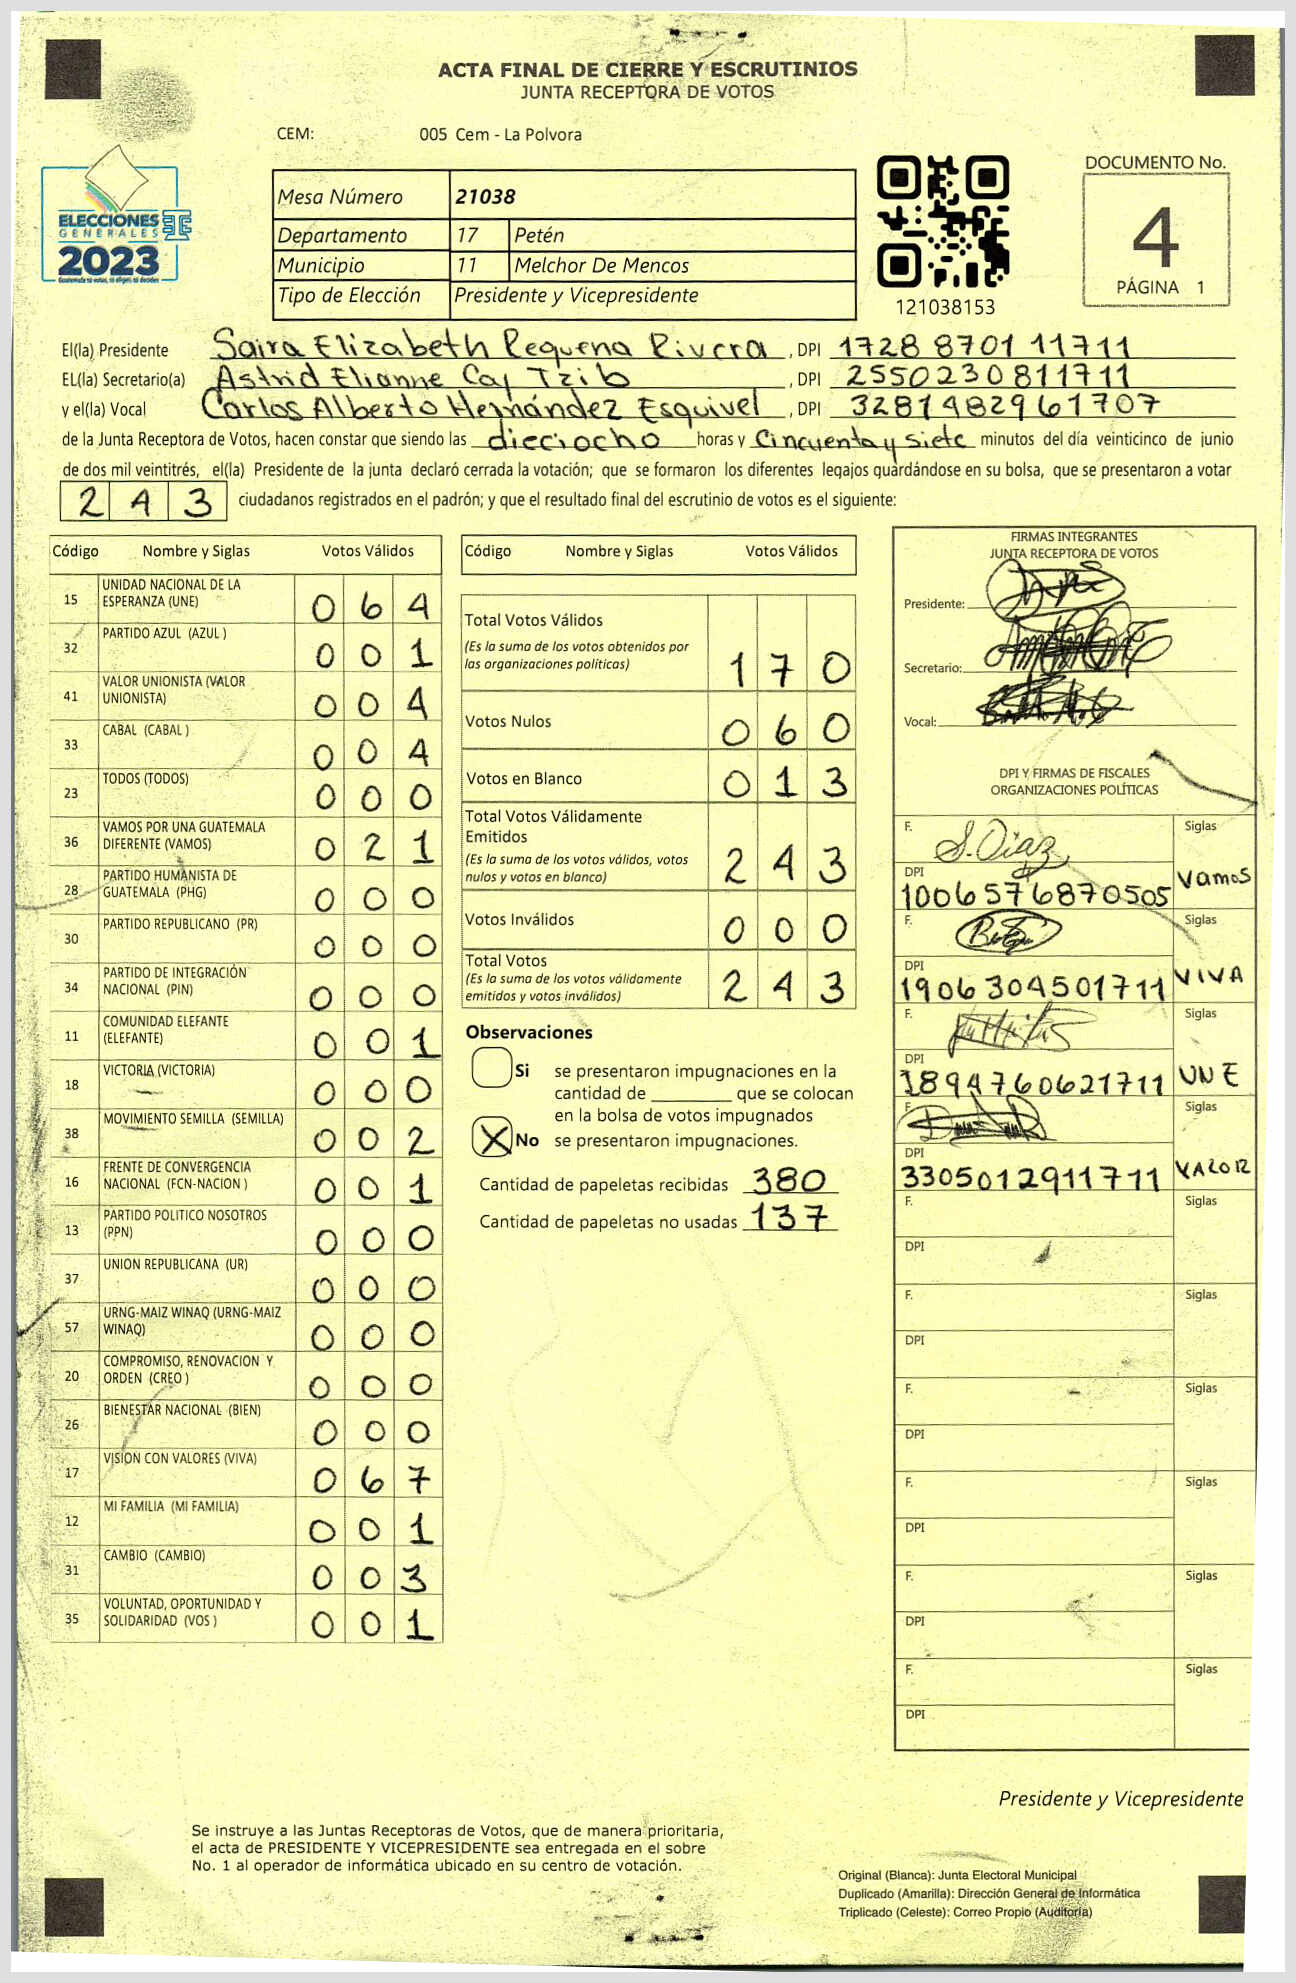 ACTA FINAL DE CIERRE Y ESCRUTINIOS
JUNTA RECEPTORA DE VOTOS
CEM: 005 Cem - La Polvora
ELECCIONES
GENERALES
2023
Mesa Número 21038
Departamento 17 Petén
Municipio 11 Melchor De Mencos
Tipo de Elección Presidente y Vicepresidente
121038153
DOCUMENTO No.
4
PÁGINA 1
El(la) Presidente Saira Elizabeth Requena Rivera, DPI 1728 8701 11711
EL(la) Secretario(a) Astrid Elianne Caj Tzib, DPI 2550230811711
y el(la) Vocal Carlos Alberto Hernández Esquivel, DPI 3281482961707
de la Junta Receptora de Votos, hacen constar que siendo las dieciocho horas y cincuenta y siete minutos del día veinticinco de junio
de dos mil veintitrés, el(la) Presidente de la junta declaró cerrada la votación; que se formaron los diferentes legajos guardándose en su bolsa, que se presentaron a votar
243 ciudadanos registrados en el padrón; y que el resultado final del escrutinio de votos es el siguiente:
Código Nombre y Siglas Votos Válidos
15 UNIDAD NACIONAL DE LA ESPERANZA (UNE) 064
32 PARTIDO AZUL (AZUL ) 001
41 VALOR UNIONISTA (VALOR UNIONISTA) 004
33 CABAL (CABAL ) 004
23 TODOS (TODOS) 000
36 VAMOS POR UNA GUATEMALA DIFERENTE (VAMOS) 021
28 PARTIDO HUMANISTA DE GUATEMALA (PHG) 000
30 PARTIDO REPUBLICANO (PR) 000
34 PARTIDO DE INTEGRACIÓN NACIONAL (PIN) 000
11 COMUNIDAD ELEFANTE (ELEFANTE) 001
18 VICTORIA (VICTORIA) 000
38 MOVIMIENTO SEMILLA (SEMILLA) 002
16 FRENTE DE CONVERGENCIA NACIONAL (FCN-NACION ) 001
13 PARTIDO POLITICO NOSOTROS (PPN) 000
37 UNION REPUBLICANA (UR) 000
57 URNG-MAIZ WINAQ (URNG-MAIZ WINAQ) 000
20 COMPROMISO, RENOVACION Y ORDEN (CREO ) 000
26 BIENESTAR NACIONAL (BIEN) 000
17 VISION CON VALORES (VIVA) 067
12 MI FAMILIA (MI FAMILIA) 001
31 CAMBIO (CAMBIO) 003
35 VOLUNTAD, OPORTUNIDAD Y SOLIDARIDAD (VOS ) 001
Código Nombre y Siglas Votos Válidos
Total Votos Válidos 170
(Es la suma de los votos obtenidos por
las organizaciones políticas)
Votos Nulos 060
Votos en Blanco 013
Total Votos Válidamente
Emitidos 243
(Es la suma de los votos válidos, votos
nulos y votos en blanco)
Votos Inválidos 000
Total Votos 243
(Es la suma de los votos válidamente
emitidos y votos inválidos)
Observaciones
Si se presentaron impugnaciones en la
cantidad de ________ que se colocan
en la bolsa de votos impugnados
X No se presentaron impugnaciones.
Cantidad de papeletas recibidas 380
Cantidad de papeletas no usadas 137
FIRMAS INTEGRANTES
JUNTA RECEPTORA DE VOTOS
Presidente:
Secretario:
Vocal:
DPI Y FIRMAS DE FISCALES
ORGANIZACIONES POLÍTICAS
F. S. Diaz Siglas
DPI Vamos
1006576870505
F. Siglas
DPI VIVA
1906304501711
F. Siglas
DPI UNE
1894760621711
F. Siglas
DPI VALOR
3305012911711
F. Siglas
DPI
F. Siglas
DPI
F. Siglas
DPI
F. Siglas
DPI
F. Siglas
DPI
F. Siglas
DPI
Presidente y Vicepresidente
Se instruye a las Juntas Receptoras de Votos, que de manera prioritaria,
el acta de PRESIDENTE Y VICEPRESIDENTE sea entregada en el sobre
No. 1 al operador de informática ubicado en su centro de votación.
Original (Blanca): Junta Electoral Municipal
Duplicado (Amarilla): Dirección General de Informática
Triplicado (Celeste): Correo Propio (Auditoría)